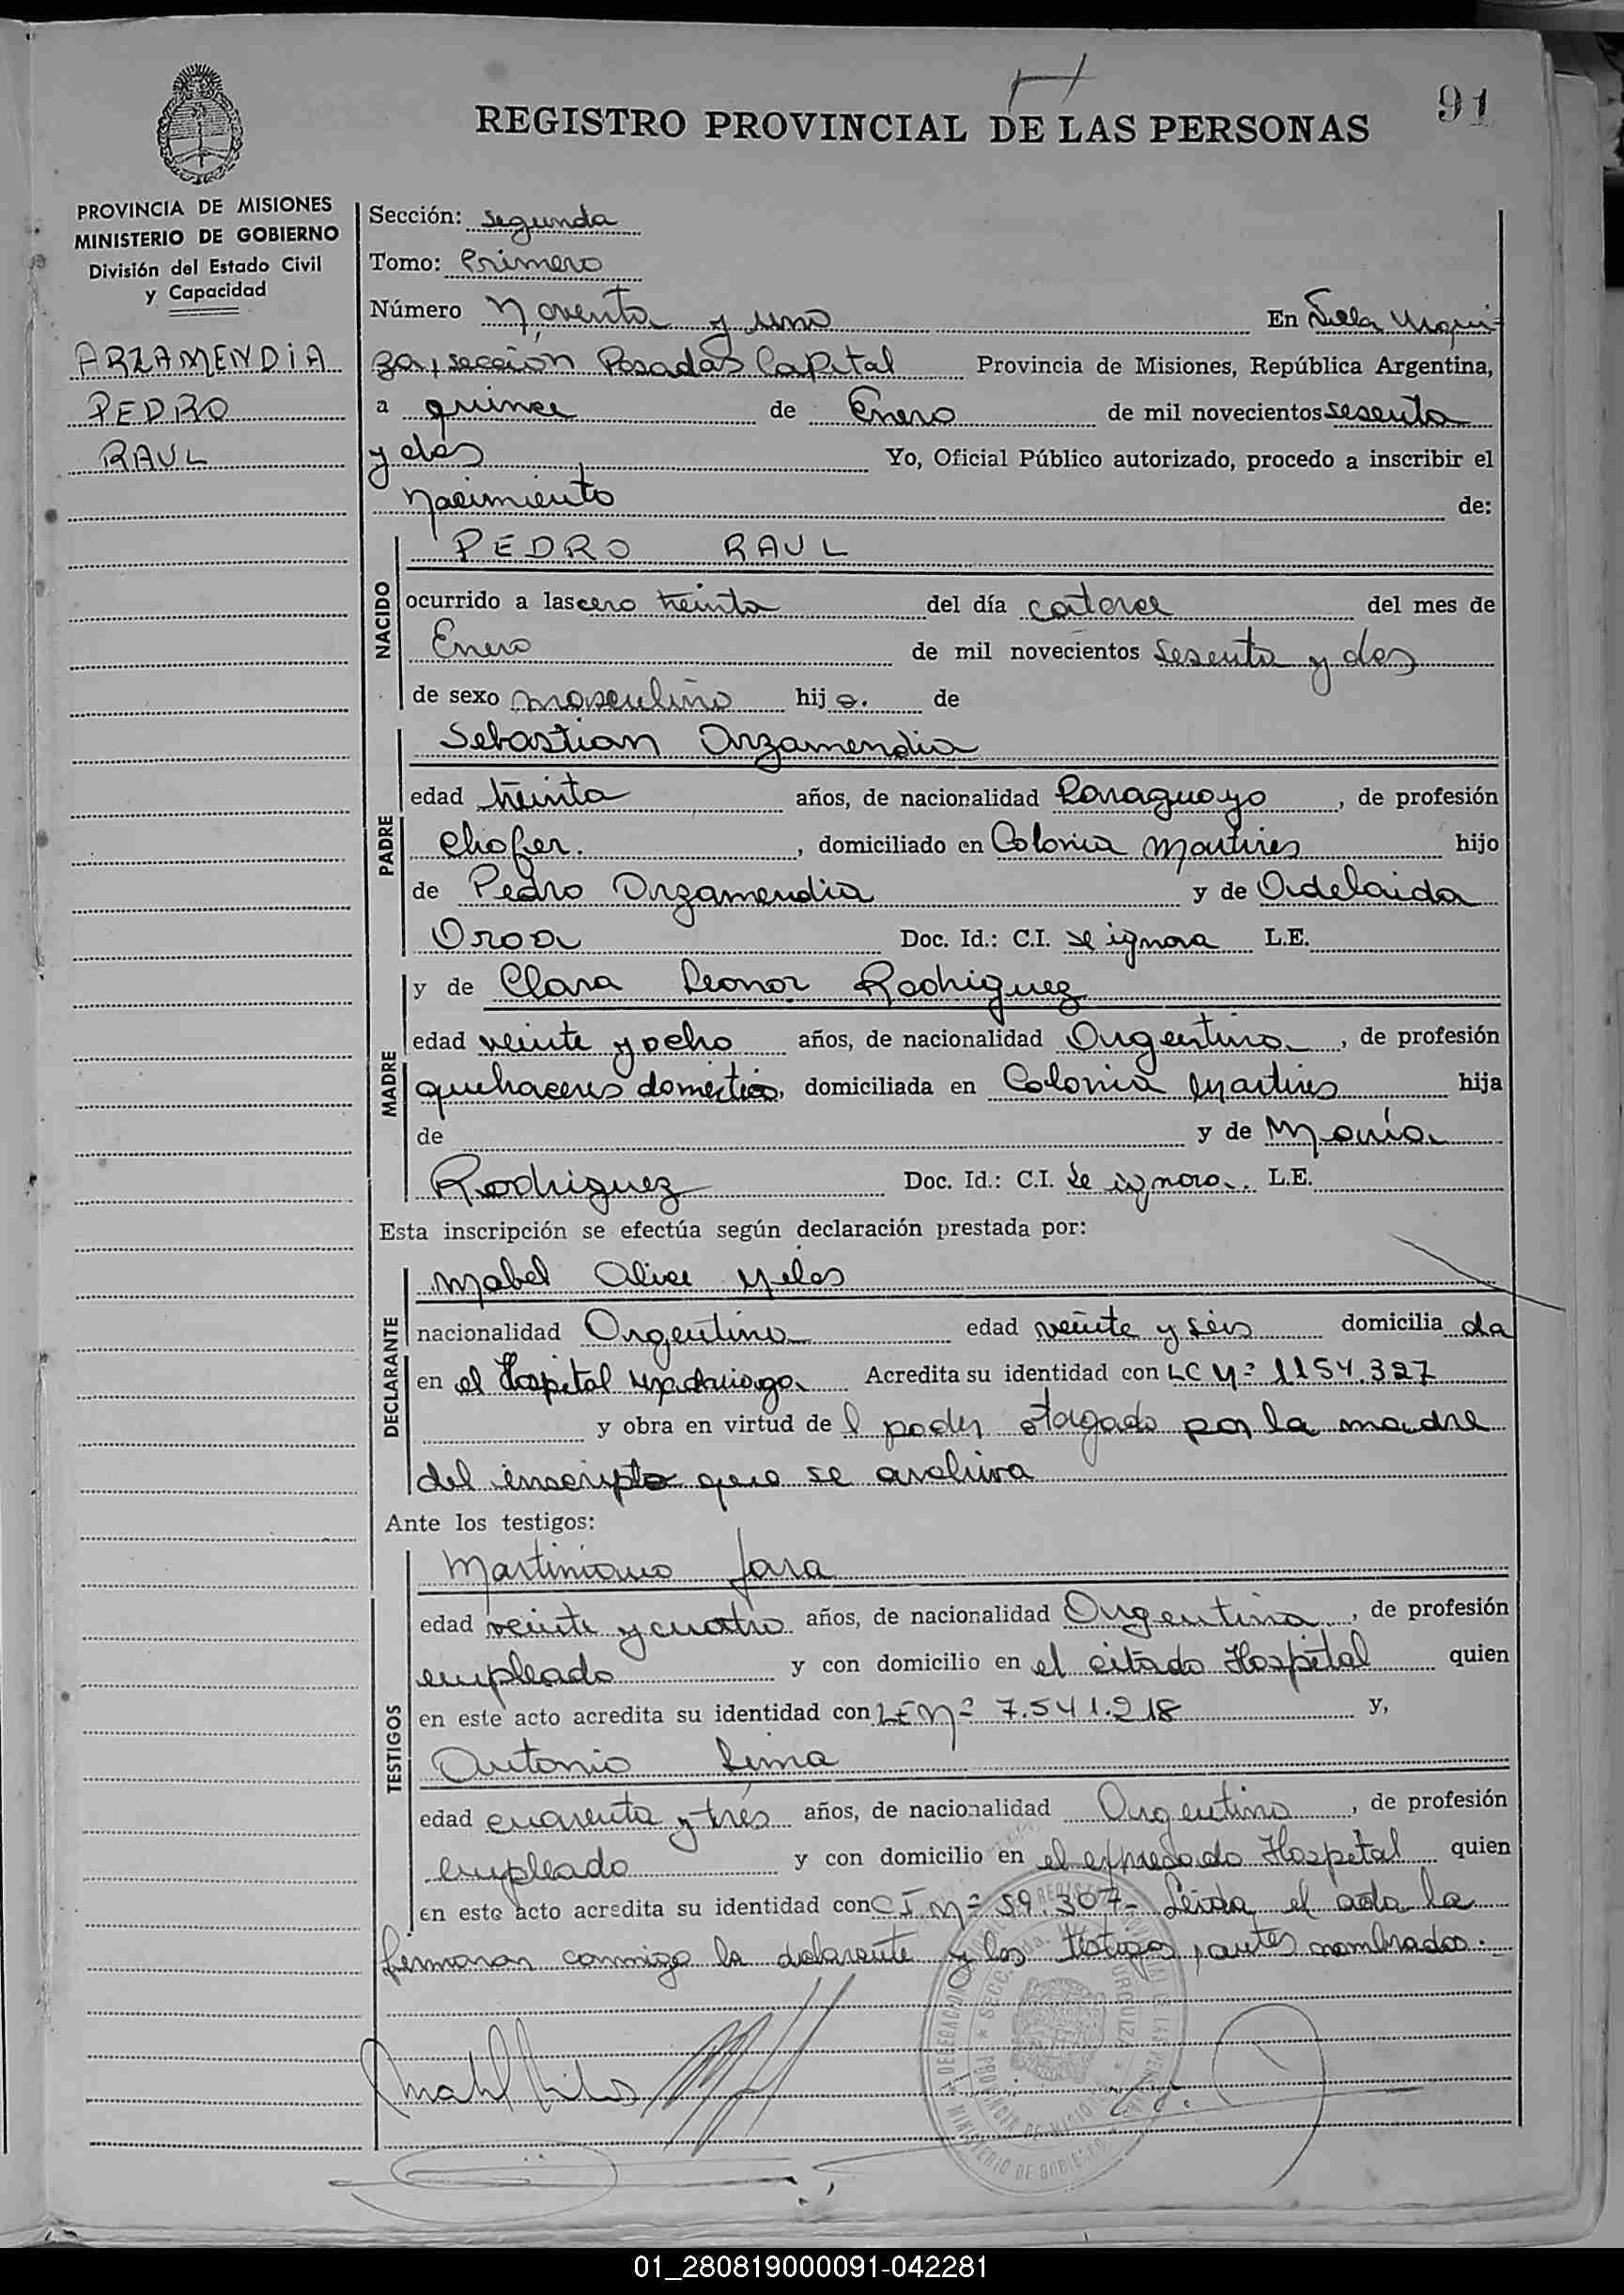 91
REGISTRO PROVINCIAL DE LAS PERSONAS
PROVINCIA DE MISIONES
MINISTERIO DE GOBIERNO
División del Estado Civil
y Capacidad
ARZAMENDIA
PEDRO
RAUL
Sección: Segunda
Tomo: Primero
Número Noventa y uno En Villa Urqui-
za, sección Posadas Capital Provincia de Misiones, República Argentina,
a quince de Enero de mil novecientos sesenta
y dos Yo, Oficial Público autorizado, procedo a inscribir el
Nacimiento de:
NACIDO
PEDRO RAUL
ocurrido a las cero treinta del día catorce del mes de
Enero de mil novecientos sesenta y dos
de sexo masculino hijo. de
PADRE
Sebastian Arzamendia
edad treinta años, de nacionalidad Paraguayo, de profesión
chofer. , domiciliado en Colonia Martires hijo
de Pedro Arzamendia y de Adelaida
Oroa Doc. Id.: C.I. se ignora L.E.
MADRE
y de Clara Leonor Rodriguez
edad veinte y ocho años, de nacionalidad Argentina, de profesión
quehaceres domésticos, domiciliada en Colonia Martires hija
de y de María
Rodriguez Doc. Id.: C.I. Se ignora. L.E.
Esta inscripción se efectúa según declaración prestada por:
DECLARANTE
Mabel Alice
nacionalidad Argentina edad veinte y séis domiciliada
en el Hospital Madariaga Acredita su identidad con LC Nº 1154.327
y obra en virtud del poder otorgado por la madre
del inscripto que se archiva
Ante los testigos:
TESTIGOS
Martiniano Jara
edad veinte y cuatro años, de nacionalidad Argentina, de profesión
empleado y con domicilio en el citado Hospital quien
en este acto acredita su identidad con LE Nº 7.541.218 y,
Antonio Lima
edad cuarenta y tres años, de nacionalidad Argentino, de profesión
empleado y con domicilio en el expresado Hospital quien
en este acto acredita su identidad con CI Nº 59.307- Leida el acta la
firmaran conmigo la declarante y los testigos, antes nombrados.
01_280819000091-042281